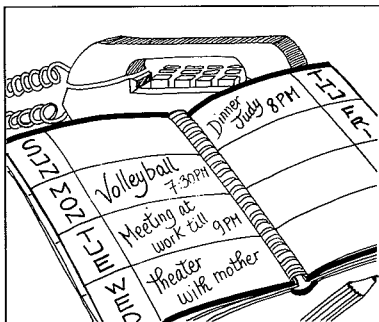 SUN
MON
Volleyball
7:30PM
TUE
Meeting at
work till 9PM
WED
theater
with mother
THU
Dinner
Judy 8PM
FRI